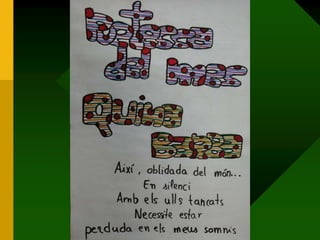 del
Quina
Així, oblidada del món...
En silenci
Amb els ulls tancats
Necessite estar
perduda en els meus somnis